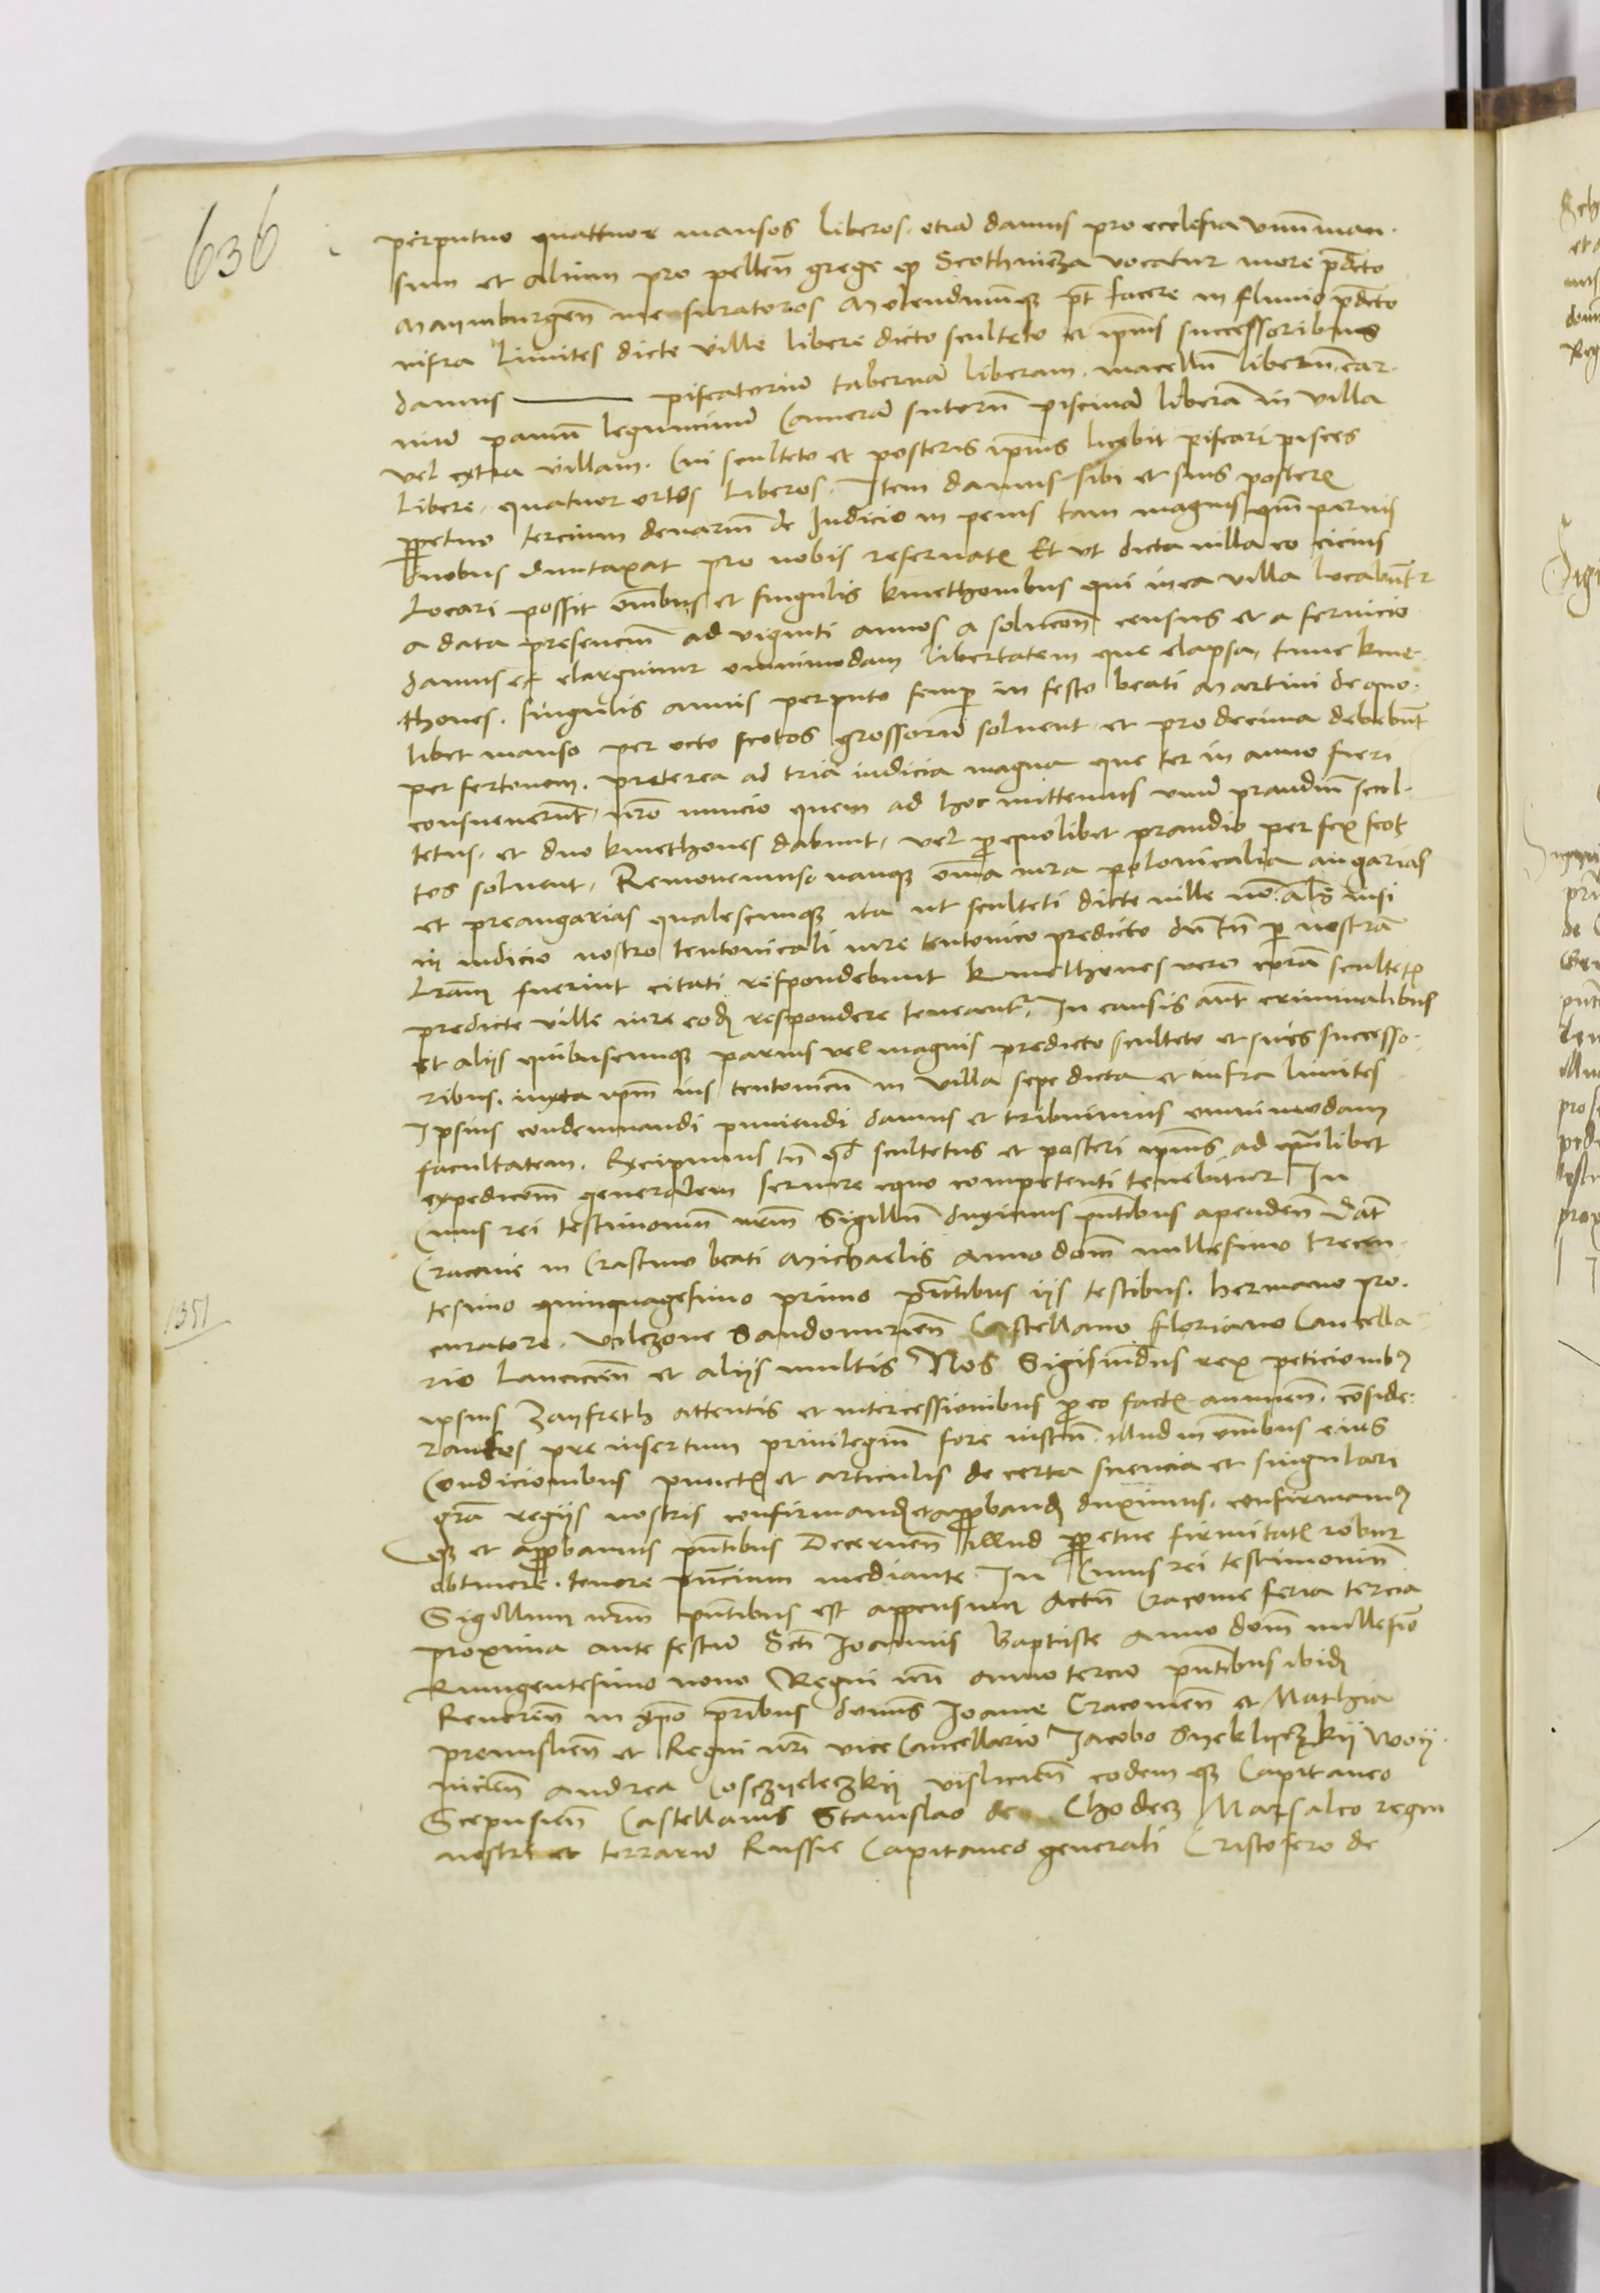 636
perpetuo quattuor mansos liberos. etiam damus pro ecclesia unum man-
sum et alium pro pellen̄ grege qd Scothnicza vocatur more p̄dcto
Maymburgen̄ mesuratoros Molendinumq̄ pt facere in fluvio p̄dcto
infra limites dicte ville libere dicto sculteto et ipius successoribus
damus ——— piscatoriam tabernam liberam. macellum liberum. car-
nium panum leguminum Cameram sutorum piscinam liberam in villa
vel extra villam. Cui sculteto et posteris ipius licebit piscari pisces
libere. quatuor ortos liberos. Item damus sibi et suis posteris
p̄petuo tercium denarium de Iudicio in penis tam magnis qm̄ parvis
duobus duntaxat pro nobis reservatis Et ut dicta villa eo cicius
locari possit om̄ibus et singulis kmethonibus qui in ea villa locabuntr
a data presencium ad viginti annos a solucōe census et a servicio
damus et elargimur omnimodam libertatem que elapsa, tunc kme-
thones. singulis annis perpetuo semp in festo beati Martini de quo-
libet manso per octo scotos grossorum solvent et pro decima debebunt
per fertonem. preterea ad tria iudicia magna que ter in anno fieri
consueverunt, nr̄o nuncio quem ad hoc mittemus unum prandium scul-
tetus. et duo kmethones dabunt, vel p quolibet prandio per sex sco-
tos solvent, Removemus namq̄ om̄ia iura polonicalia angarias
et preangarias qualescumq̄ ita ut sculteti dicte ville no. alr̄ nisi
in iudicio nostro teutonicali iure teutonico predicto dum tn̄ p nostram
lr̄am fuerint citati respondebunt kmethones vero coram scultetis
predicte ville iure eodem respondere teneantr, In causis aut̄ criminalibus
et aliis quibuscumq̄ parvis vel magnis predicto sculteto et suis successo-
ribus. iuxta ipm̄ ius teutonicum in villa sepe dicta et infra limites
Ipsius condemnandi puniendi damus et tribuimus omnimodam
facultatem. Excipimus tn̄ qd scultetus et posteri ipius ad quālibet
expedicōem generalem servire equo competenti tenebitur In
Cuius rei testimonium nr̄m Sigillum duximus pn̄tibus apenden̄ Dat̄
Cracovie in Crastino beati Michaelis Anno dom̄ millesimo trecen-
1351
tesimo quinquagesimo primo p̄ntibus iis testibus. hermano pro-
curatore. Vilczone Sandomirien̄ Castellano floriano Cancella-
rio lanciciēn et aliis multis Nos Sigismūdus rex peticionibus
ipsius Zayfreth attentis et intercessionibus p eo factis annuen̄. cōside-
rantes pre insertum privilegium fore iustum. illud in om̄ibus eius
Condicionibus punctis et articulis de certa sciencia et singulari
grā regiis nostris confirmand et approband duximus. confirmamus
q̄ et approbamus pn̄tibus Decernen̄ illud p̄petue firmitatis robur
obtinere. tenore pn̄cium mediante. In Cuius rei testimonium
Sigillum nr̄m pn̄tibus est appensum Actum Cracovie feria tercia
proxima ante festum Scti Joannis Baptiste Anno dom̄ millesimo
Quingentesimo nono Regni nr̄i anno tercio pn̄tibus ibid
Reveren̄ in xpo p̄ribus domīs Joanne Cracovien̄ et Mathia
premislien̄ et Regni nr̄i vice Cancellario Jacobo Syeklyczkii Woy-
nicien̄ Andrea Cosczyeleczkii vislicien̄ eodem q̄ Capitaneo
Scepusien̄ Castellanis Stanislao de Chodecz Marsalco regni
nostri et terrarum Russie Capitaneo generali Cristofero de